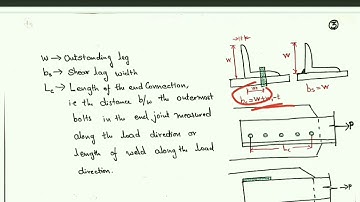 ③
w → Outstanding leg
bs → Shear lag width
Lc → Length of the end Connection,
i.e the distance b/w the outermost
bolts in the end joint measured
along the load direction or
length of weld along the load
direction.
w
w
bs = w
Lc
P
P